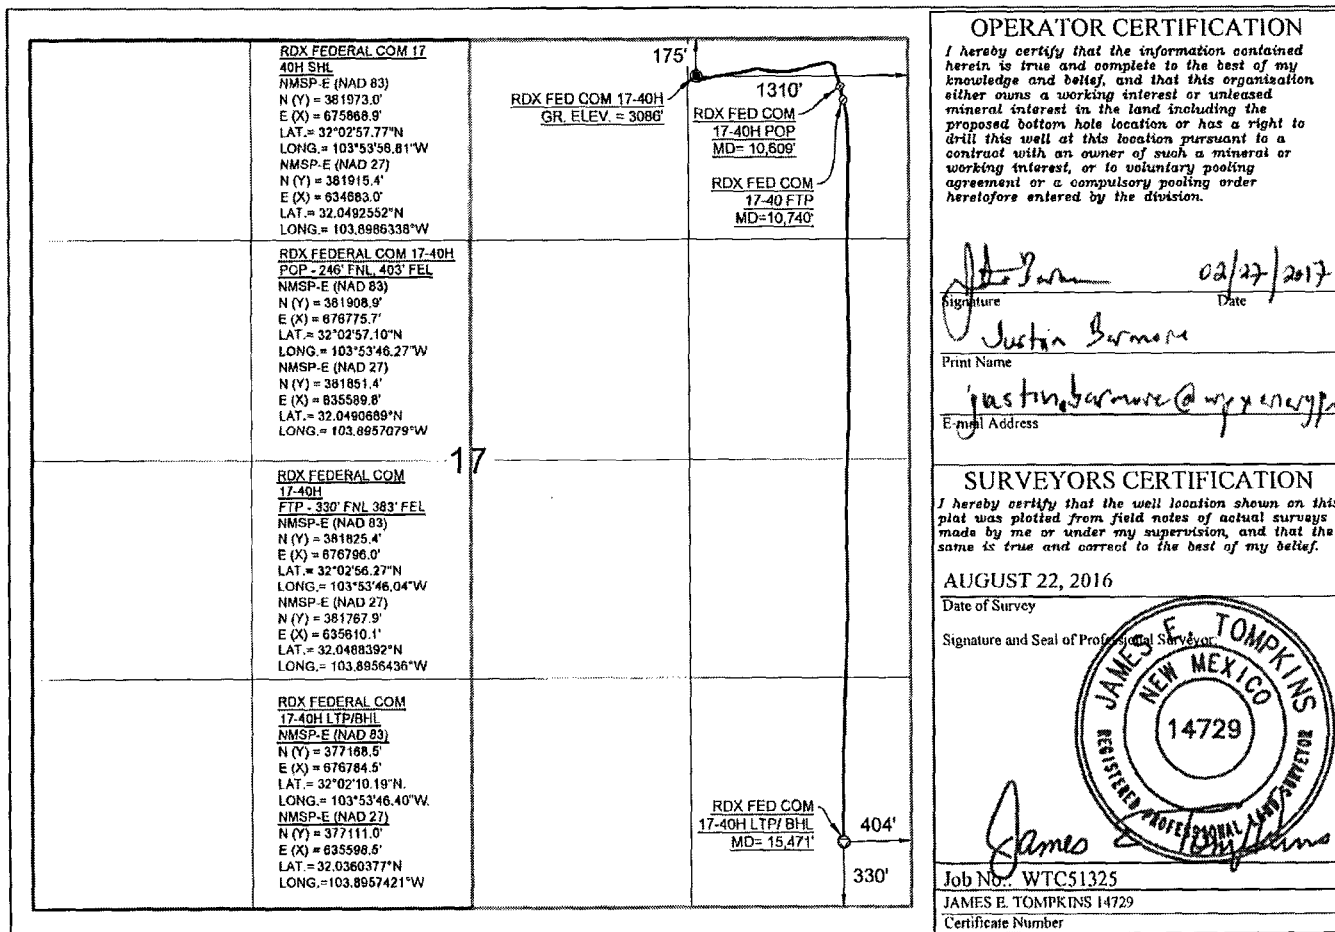 RDX FEDERAL COM 17
40H SHL
NMSP-E (NAD 83)
N (Y) = 381973.0'
E (X) = 675868.9'
LAT.= 32°02'57.77"N
LONG.= 103°53'56.81"W
NMSP-E (NAD 27)
N (Y) = 381915.4'
E (X) = 634683.0'
LAT.= 32.0492552°N
LONG.= 103.8986338°W
RDX FEDERAL COM 17-40H
POP - 246' FNL, 403' FEL
NMSP-E (NAD 83)
N (Y) = 381908.9'
E (X) = 676775.7'
LAT.= 32°02'57.10"N
LONG.= 103°53'46.27"W
NMSP-E (NAD 27)
N (Y) = 381851.4'
E (X) = 635589.8'
LAT.= 32.0490689°N
LONG.= 103.8957079°W
17
RDX FEDERAL COM
17-40H
FTP - 330' FNL 383' FEL
NMSP-E (NAD 83)
N (Y) = 381825.4'
E (X) = 676796.0'
LAT.= 32°02'56.27"N
LONG.= 103°53'46.04"W
NMSP-E (NAD 27)
N (Y) = 381767.9'
E (X) = 635610.1'
LAT.= 32.0488392°N
LONG.= 103.8956436°W
RDX FEDERAL COM
17-40H LTP/BHL
NMSP-E (NAD 83)
N (Y) = 377168.5'
E (X) = 676784.5'
LAT.= 32°02'10.19"N.
LONG.= 103°53'46.40"W.
NMSP-E (NAD 27)
N (Y) = 377111.0'
E (X) = 635598.5'
LAT.= 32.0360377°N
LONG.=103.8957421°W
175'
1310'
RDX FED COM 17-40H
GR. ELEV. = 3086'
RDX FED COM
17-40H POP
MD= 10,609'
RDX FED COM
17-40 FTP
MD=10,740'
RDX FED COM
17-40H LTP/ BHL
MD= 15,471'
404'
330'
OPERATOR CERTIFICATION
I hereby certify that the information contained
herein is true and complete to the best of my
knowledge and belief, and that this organization
either owns a working interest or unleased
mineral interest in the land including the
proposed bottom hole location or has a right to
drill this well at this location pursuant to a
contract with an owner of such a mineral or
working interest, or to voluntary pooling
agreement or a compulsory pooling order
heretofore entered by the division.
02/27/2017
Signature Date
Justin Barmore
Print Name
E-mail Address
SURVEYORS CERTIFICATION
I hereby certify that the well location shown on this
plat was plotted from field notes of actual surveys
made by me or under my supervision, and that the
same is true and correct to the best of my belief.
AUGUST 22, 2016
Date of Survey
Signature and Seal of Professional Surveyor:
JAMES E. TOMPKINS
NEW MEXICO
14729
REGISTERED PROFESSIONAL LAND SURVEYOR
James E Tompkins
Job No.: WTC51325
JAMES E. TOMPKINS 14729
Certificate Number